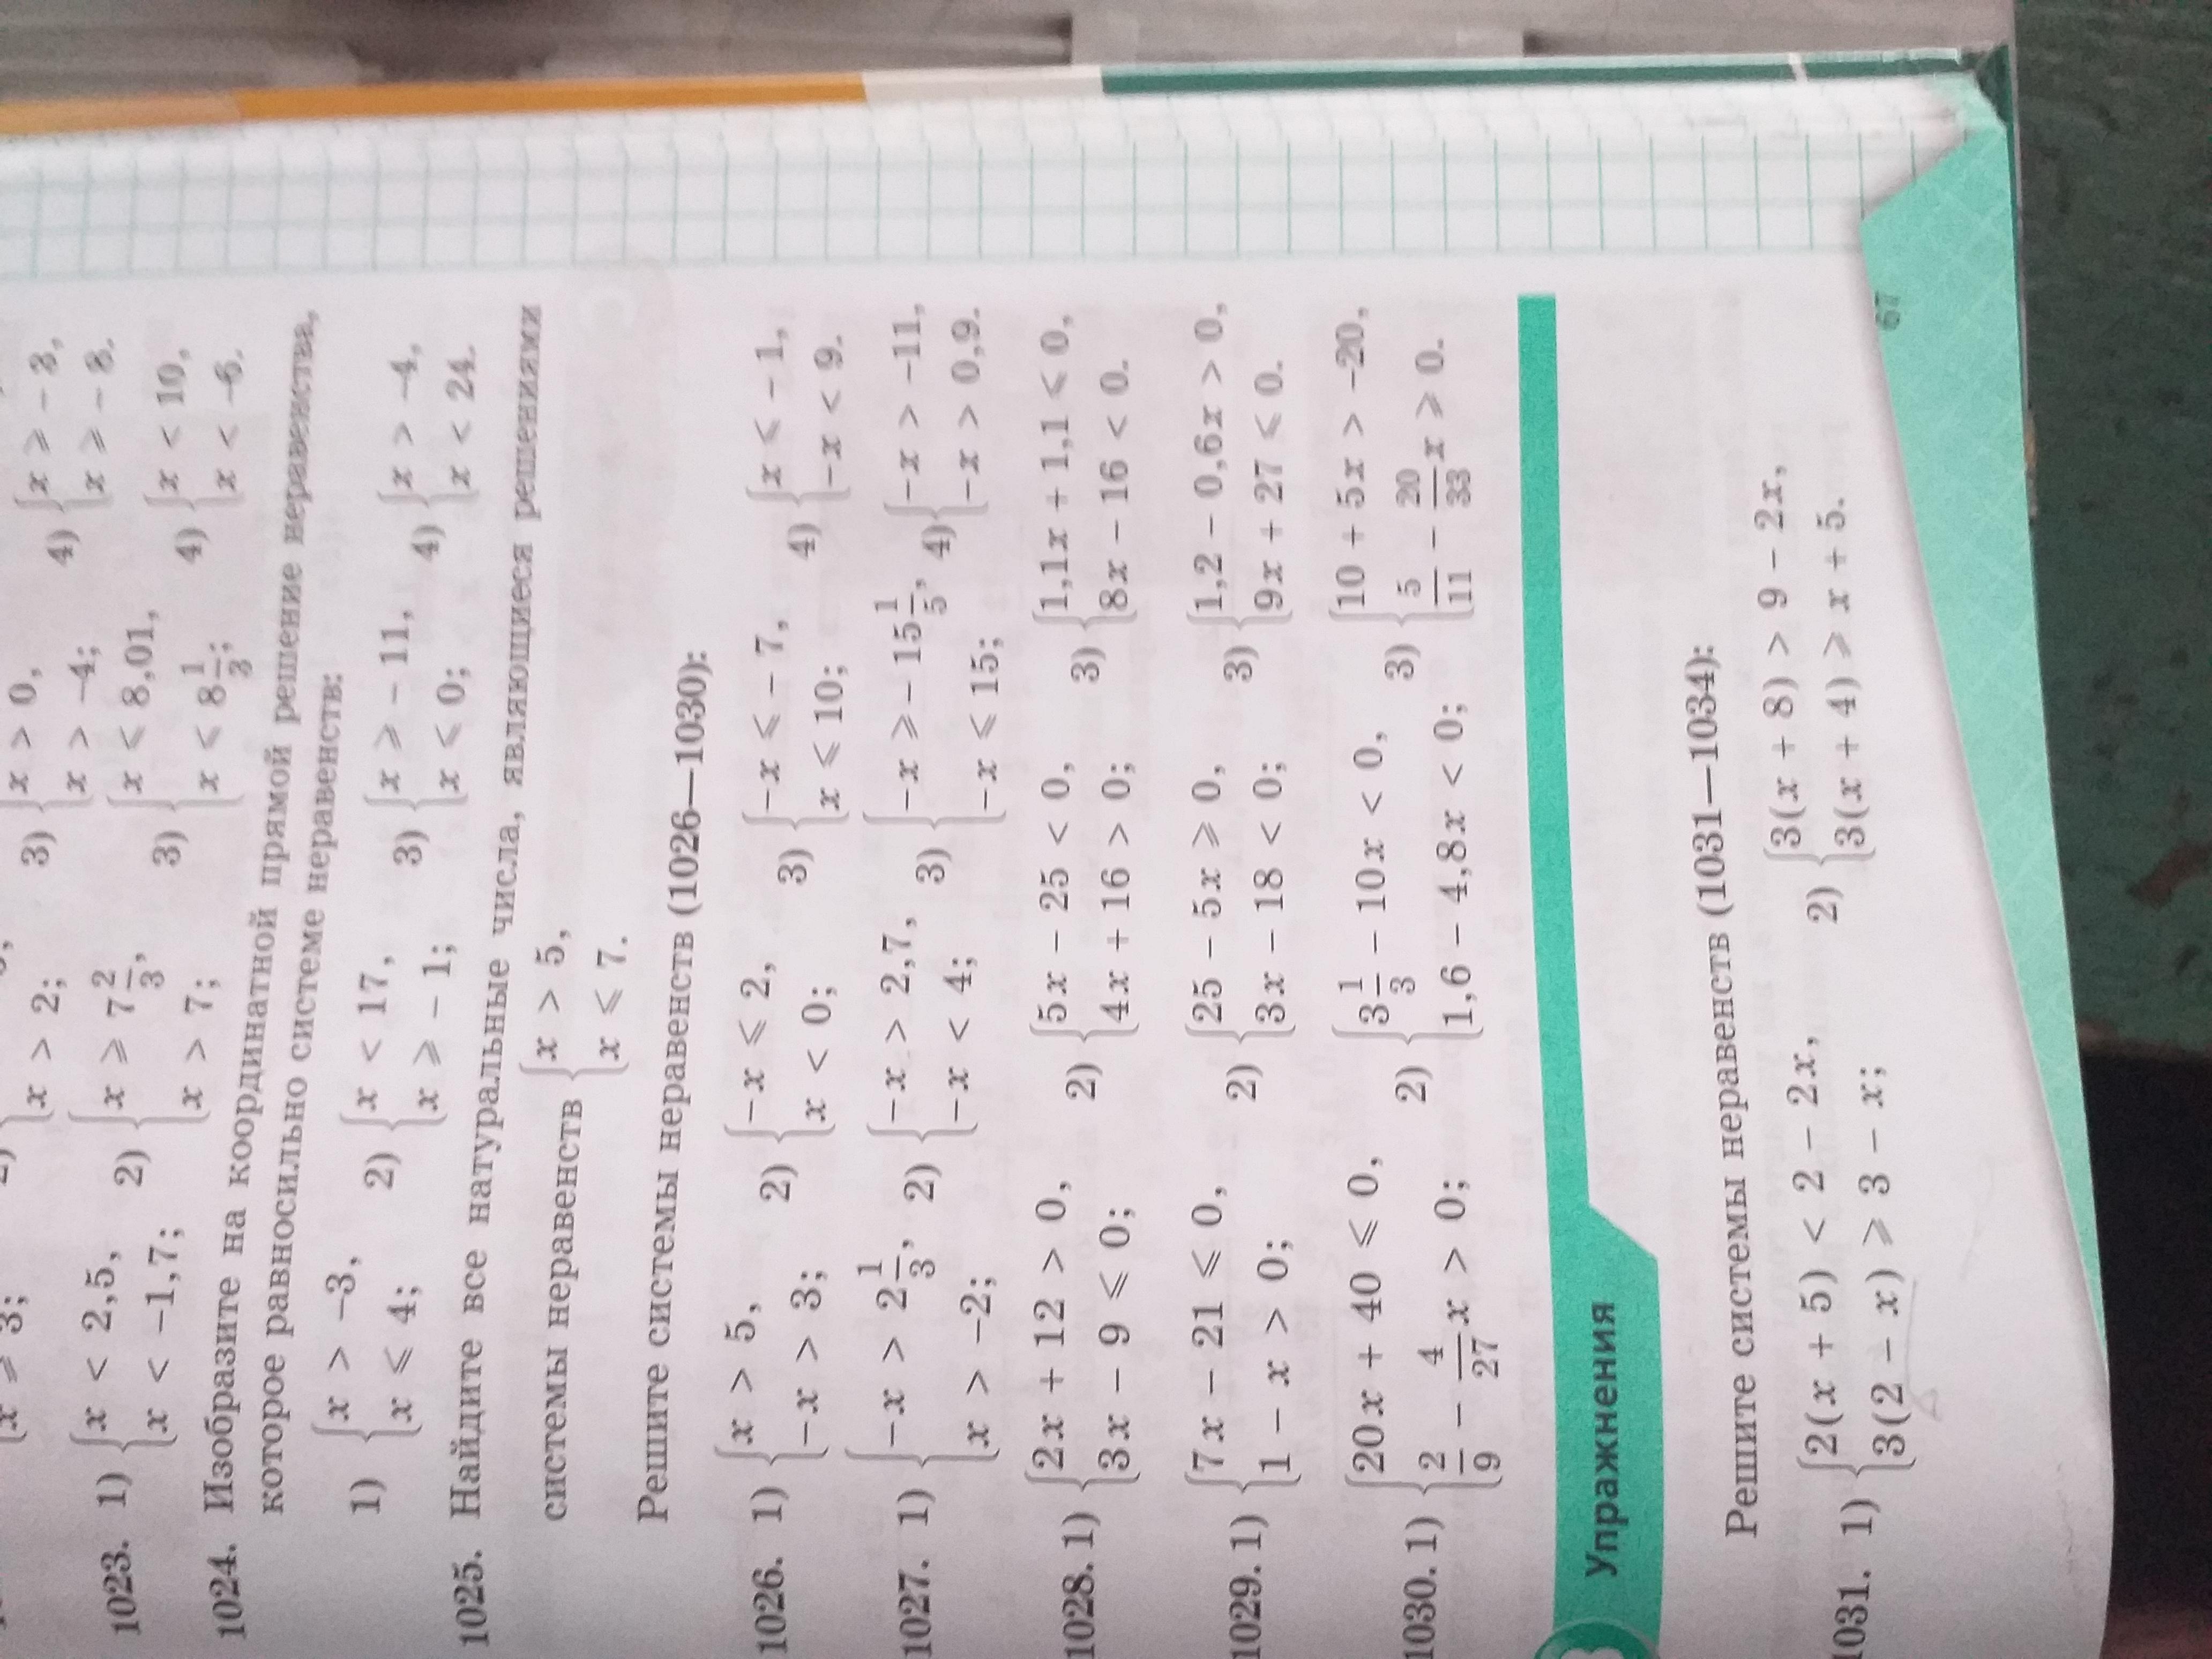 x ⩾ 3; x > 2; 3) { x > 0, x > -4; 4) { x ⩾ -3, x ⩾ -8.
1023. 1) { x < 2,5, x < -1,7; 2) { x ⩾ 7 2/3, x > 7; 3) { x ⩽ 8,01, x < 8 1/3; 4) { x < 10, x < -6.
1024. Изобразите на координатной прямой решение неравенства,
которое равносильно системе неравенств:
1) { x > -3, x ⩽ 4; 2) { x < 17, x ⩾ -1; 3) { x ⩾ -11, x ⩽ 0; 4) { x > -4, x < 24.
1025. Найдите все натуральные числа, являющиеся решениями
системы неравенств { x > 5, x ⩽ 7.
Решите системы неравенств (1026—1030):
1026. 1) { x > 5, -x > 3; 2) { -x ⩽ 2, x < 0; 3) { -x ⩽ -7, x ⩽ 10; 4) { x ⩽ -1, -x < 9.
1027. 1) { -x > 2 1/3, x > -2; 2) { -x > 2,7, -x < 4; 3) { -x ⩾ -15 1/5, -x ⩽ 15; 4) { -x > -11, -x > 0,9.
1028. 1) { 2x + 12 > 0, 3x - 9 ⩽ 0; 2) { 5x - 25 < 0, 4x + 16 > 0; 3) { 1,1x + 1,1 ⩽ 0, 8x - 16 < 0.
1029. 1) { 7x - 21 ⩽ 0, 1 - x > 0; 2) { 25 - 5x ⩾ 0, 3x - 18 < 0; 3) { 1,2 - 0,6x > 0, 9x + 27 ⩽ 0.
1030. 1) { 20x + 40 ⩽ 0, 2/9 - 4/27 x > 0; 2) { 3 1/3 - 10x < 0, 1,6 - 4,8x < 0; 3) { 10 + 5x > -20, 5/11 - 20/33 x ⩾ 0.
Упражнения
Решите системы неравенств (1031—1034):
1031. 1) { 2(x + 5) < 2 - 2x, 3(2 - x) ⩾ 3 - x; 2) { 3(x + 8) > 9 - 2x, 3(x + 4) ⩾ x + 5.
67